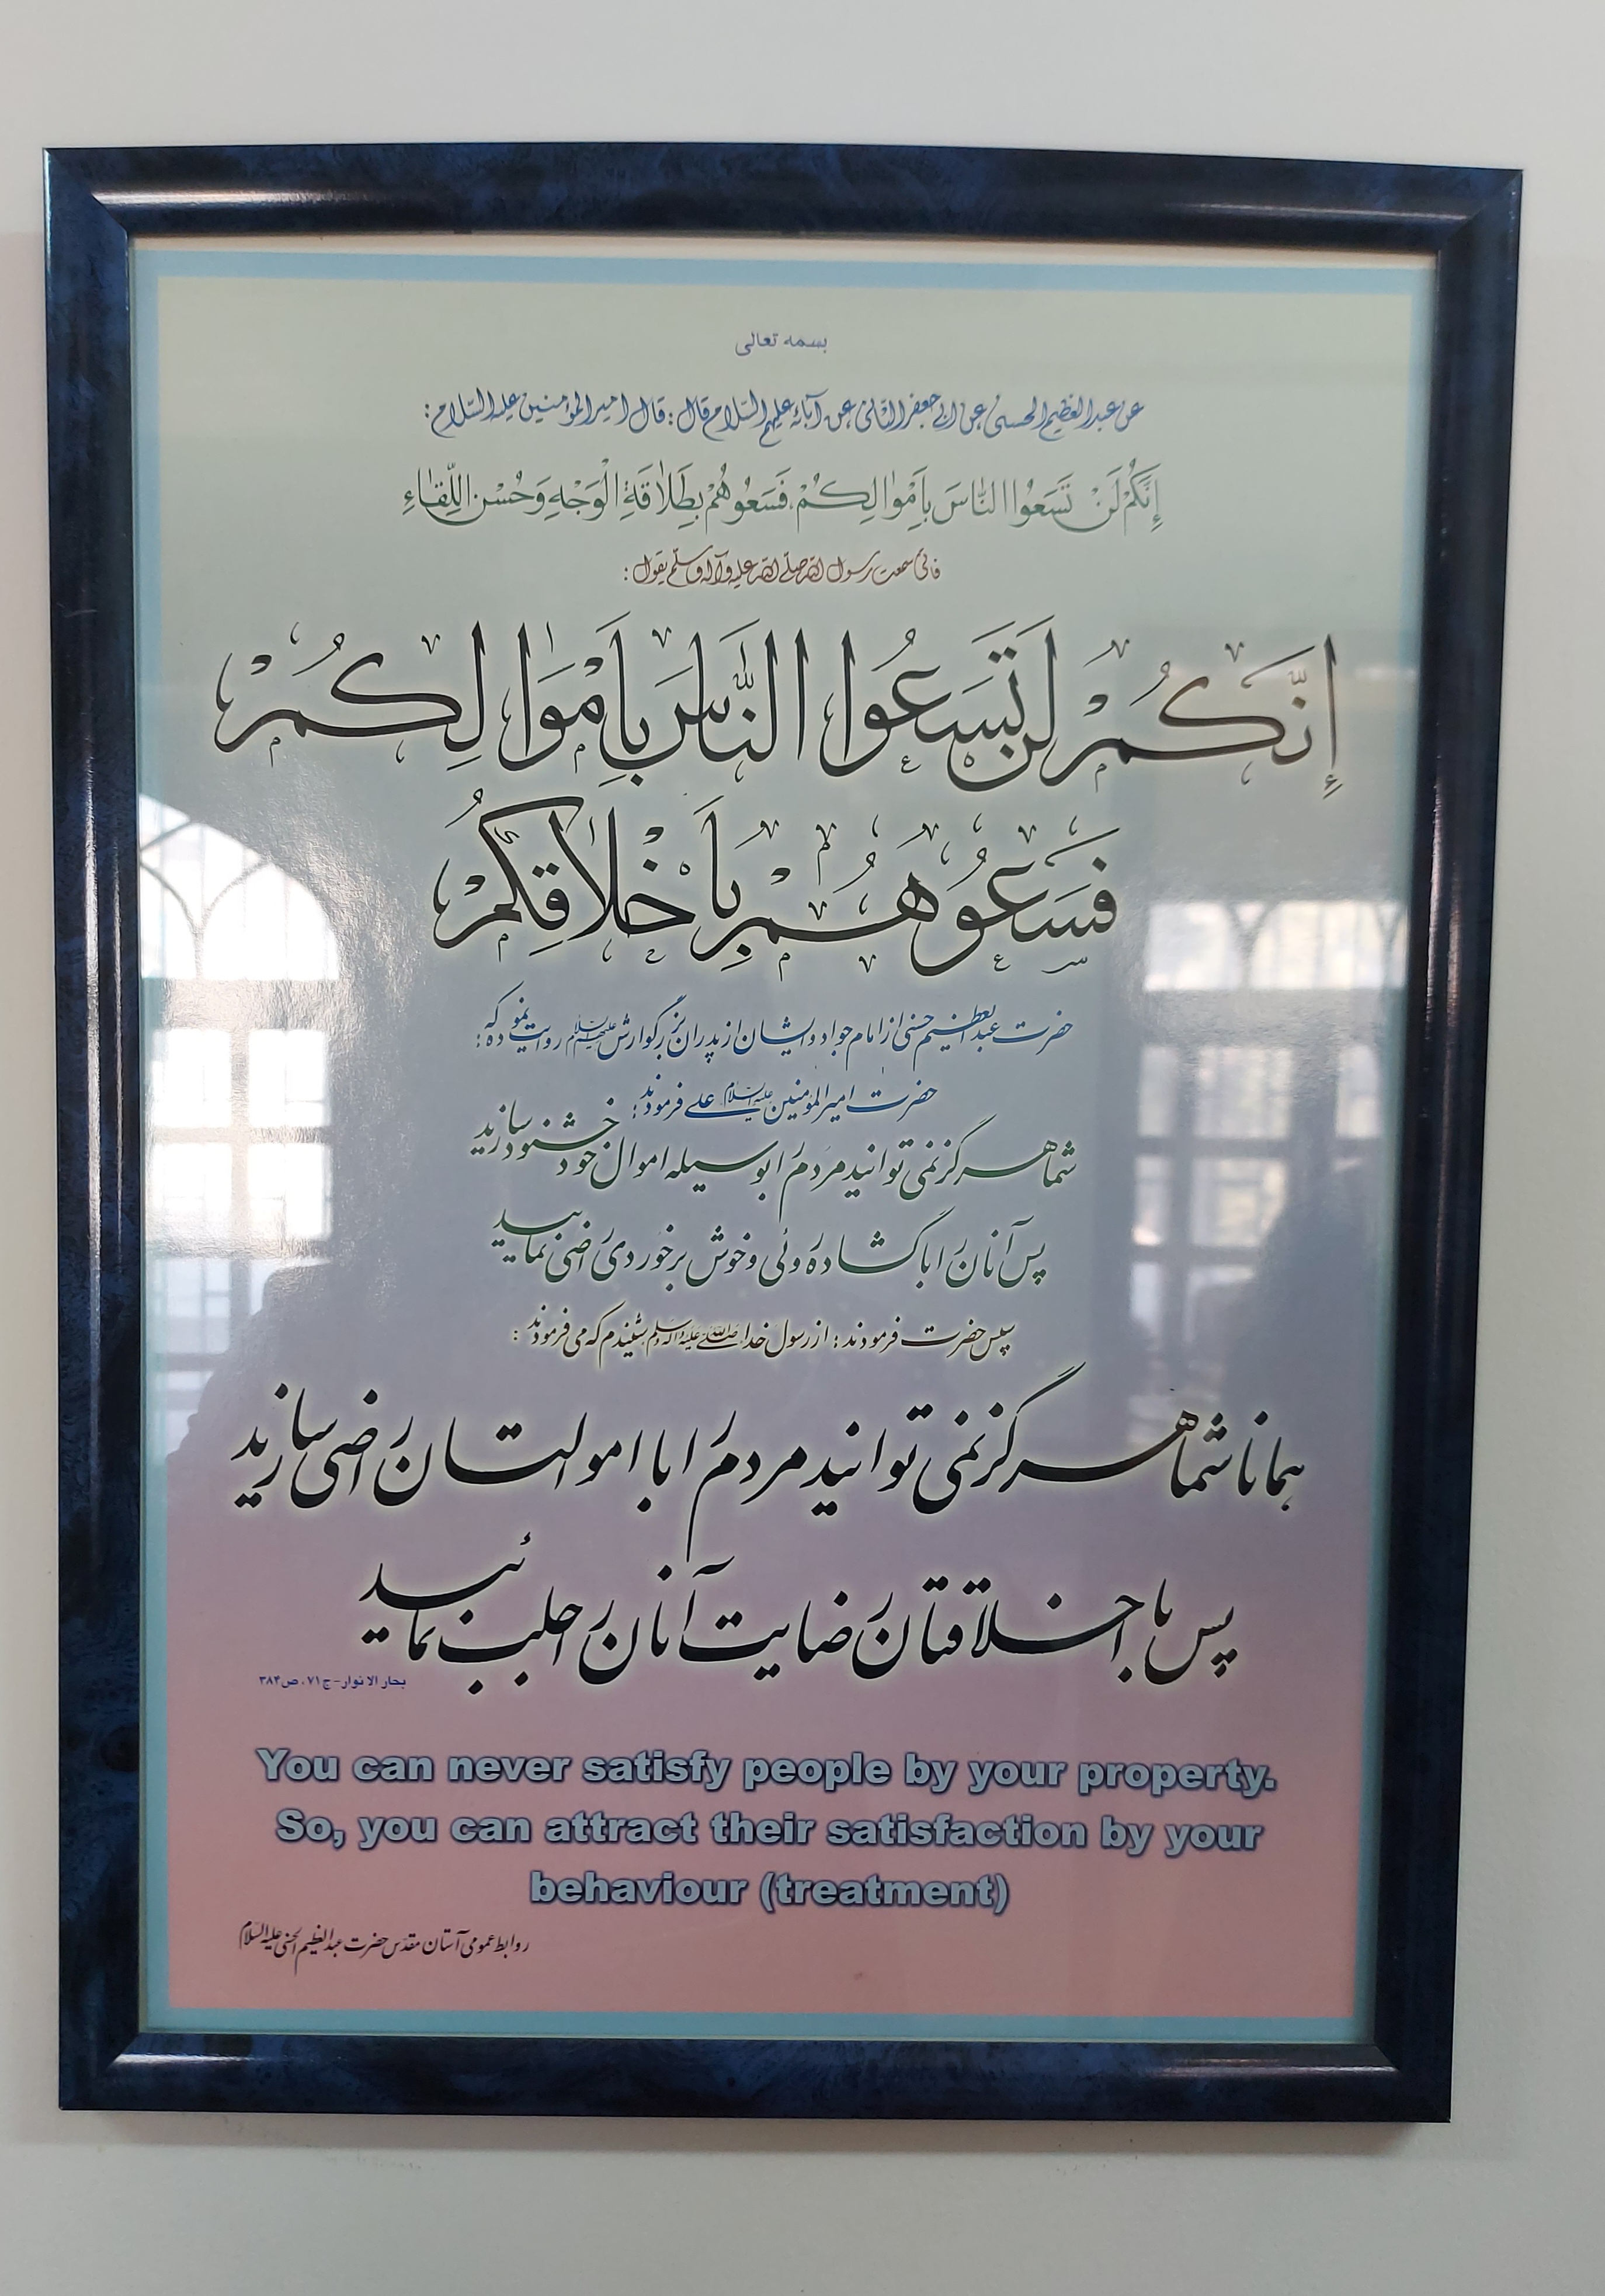 بسمه تعالی
عن عبدالعظیم الحسنی عن ابی جعفر الثانی عن آبائه علیهم السّلام قال : قال امیرالمؤمنین علیه السّلام :
إِنَّكُمْ لَنْ تَسَعُوا النّاسَ بِأَمْوالِكُمْ، فَسَعُوهُمْ بِطَلاقَةِ الْوَجْهِ وَحُسْنِ اللِّقاءِ
فانی سمعت رسول الله صلی الله علیه وآله وسلم یقول :
إِنَّكُمْ لَنْ تَسَعُوا النَّاسَ بِأَمْوَالِكُمْ
فَسَعُوهُمْ بِأَخْلَاقِكُمْ
حضرت عبدالعظیم حسنی از امام جواد و ایشان از پدران بزرگوارش علیهم السلام روایت نموده که :
حضرت امیرالمؤمنین علی علیه السلام فرمودند :
شما هرگز نمی توانید مردم را بوسیله اموال خود خشنود سازید
پس آنان را با گشاده روئی و خوش برخوردی راضی نمایید
سپس حضرت فرمودند : از رسول خدا صلی الله علیه وآله وسلم شنیدم که می فرمودند :
همانا شما هرگز نمی توانید مردم را با اموالتان راضی سازید
پس با اخلاقتان رضایت آنان را جلب نمائید
بحار الانوار - ج ۷۱، ص ۳۸۴
You can never satisfy people by your property.
So, you can attract their satisfaction by your
behaviour (treatment)
روابط عمومی آستان مقدّس حضرت عبدالعظیم الحسنی علیه السّلام